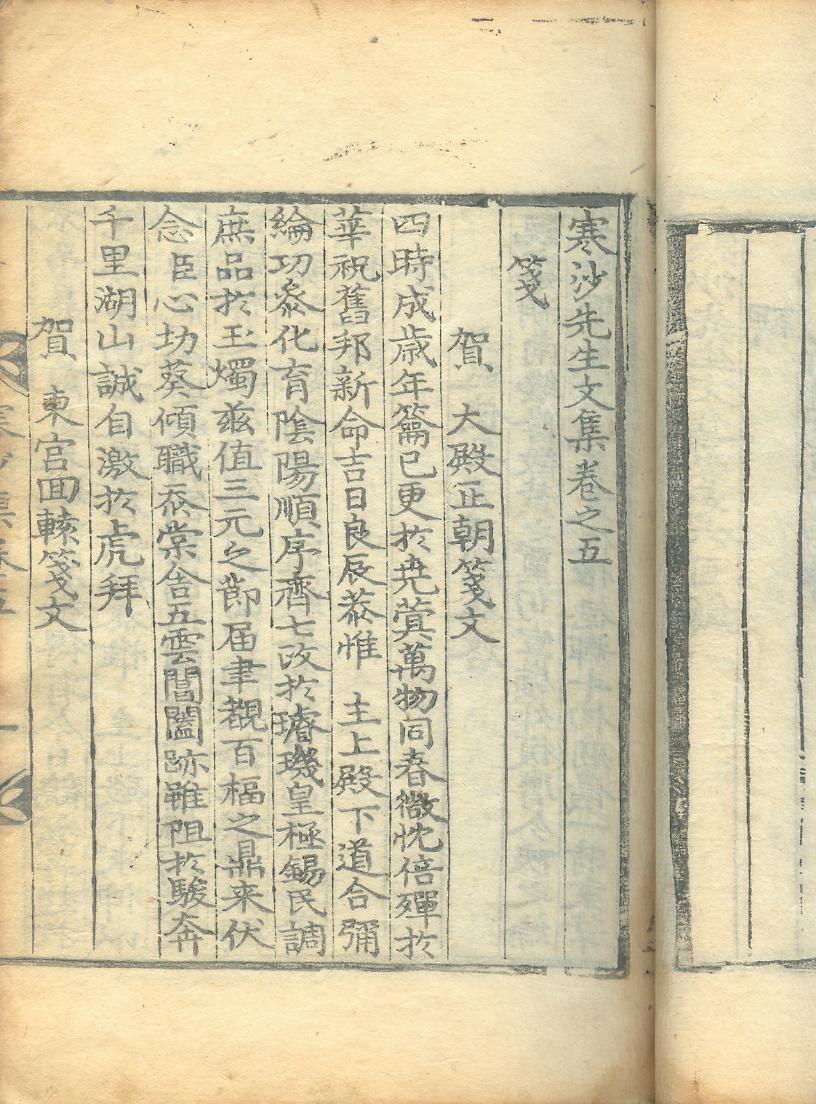 寒沙先生文集卷之五
箋
賀 大殿正朝箋文
四時成歲年籥已更於堯蓂萬物同春微忱倍殫於
華祝舊邦新命吉日良辰恭惟 主上殿下道合彌
綸功叅化育陰陽順序齊七政於璿璣皇極錫民調
庶品於玉燭玆值三元之節届聿覩百福之鼎来伏
念臣心切葵傾職忝棠舍五雲閶闔跡雖阻於駿奔
千里湖山誠自激於虎拜
賀 東宮回轅箋文